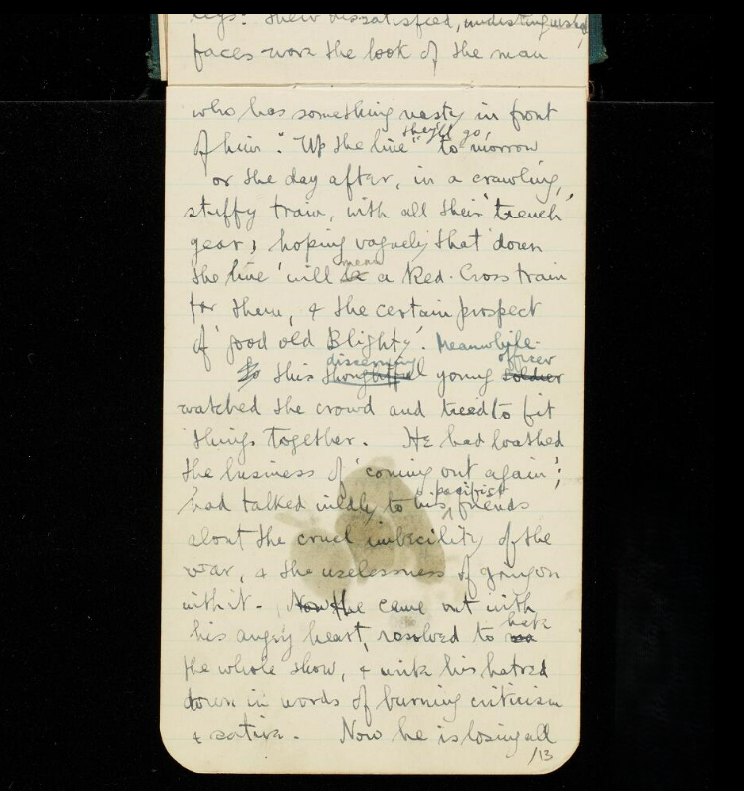 legs. Their dissatisfied, undistinguished,
faces wore the look of the man
who has something nasty in front
of him. "Up the line" they'll go to-morrow
or the day after, in a crawling,
stuffy train, with all their 'trench'
gear; hoping vaguely that 'down
the line' will be mean a Red-Cross train
for them, & the certain prospect
of 'good old Blighty'. Meanwhile
So this thoughtful discerning young soldier officer
watched the crowd and tried to fit
things together. He had loathed
the business of 'coming out again';
had talked wildly to his pacifist friends
about the cruel imbecility of the
war, & the uselessness of going on
with it. Now he came out with
his angry heart, resolved to hate
the whole show, & write his hatred
down in words of burning criticism
& satire. Now he is losing all
/13